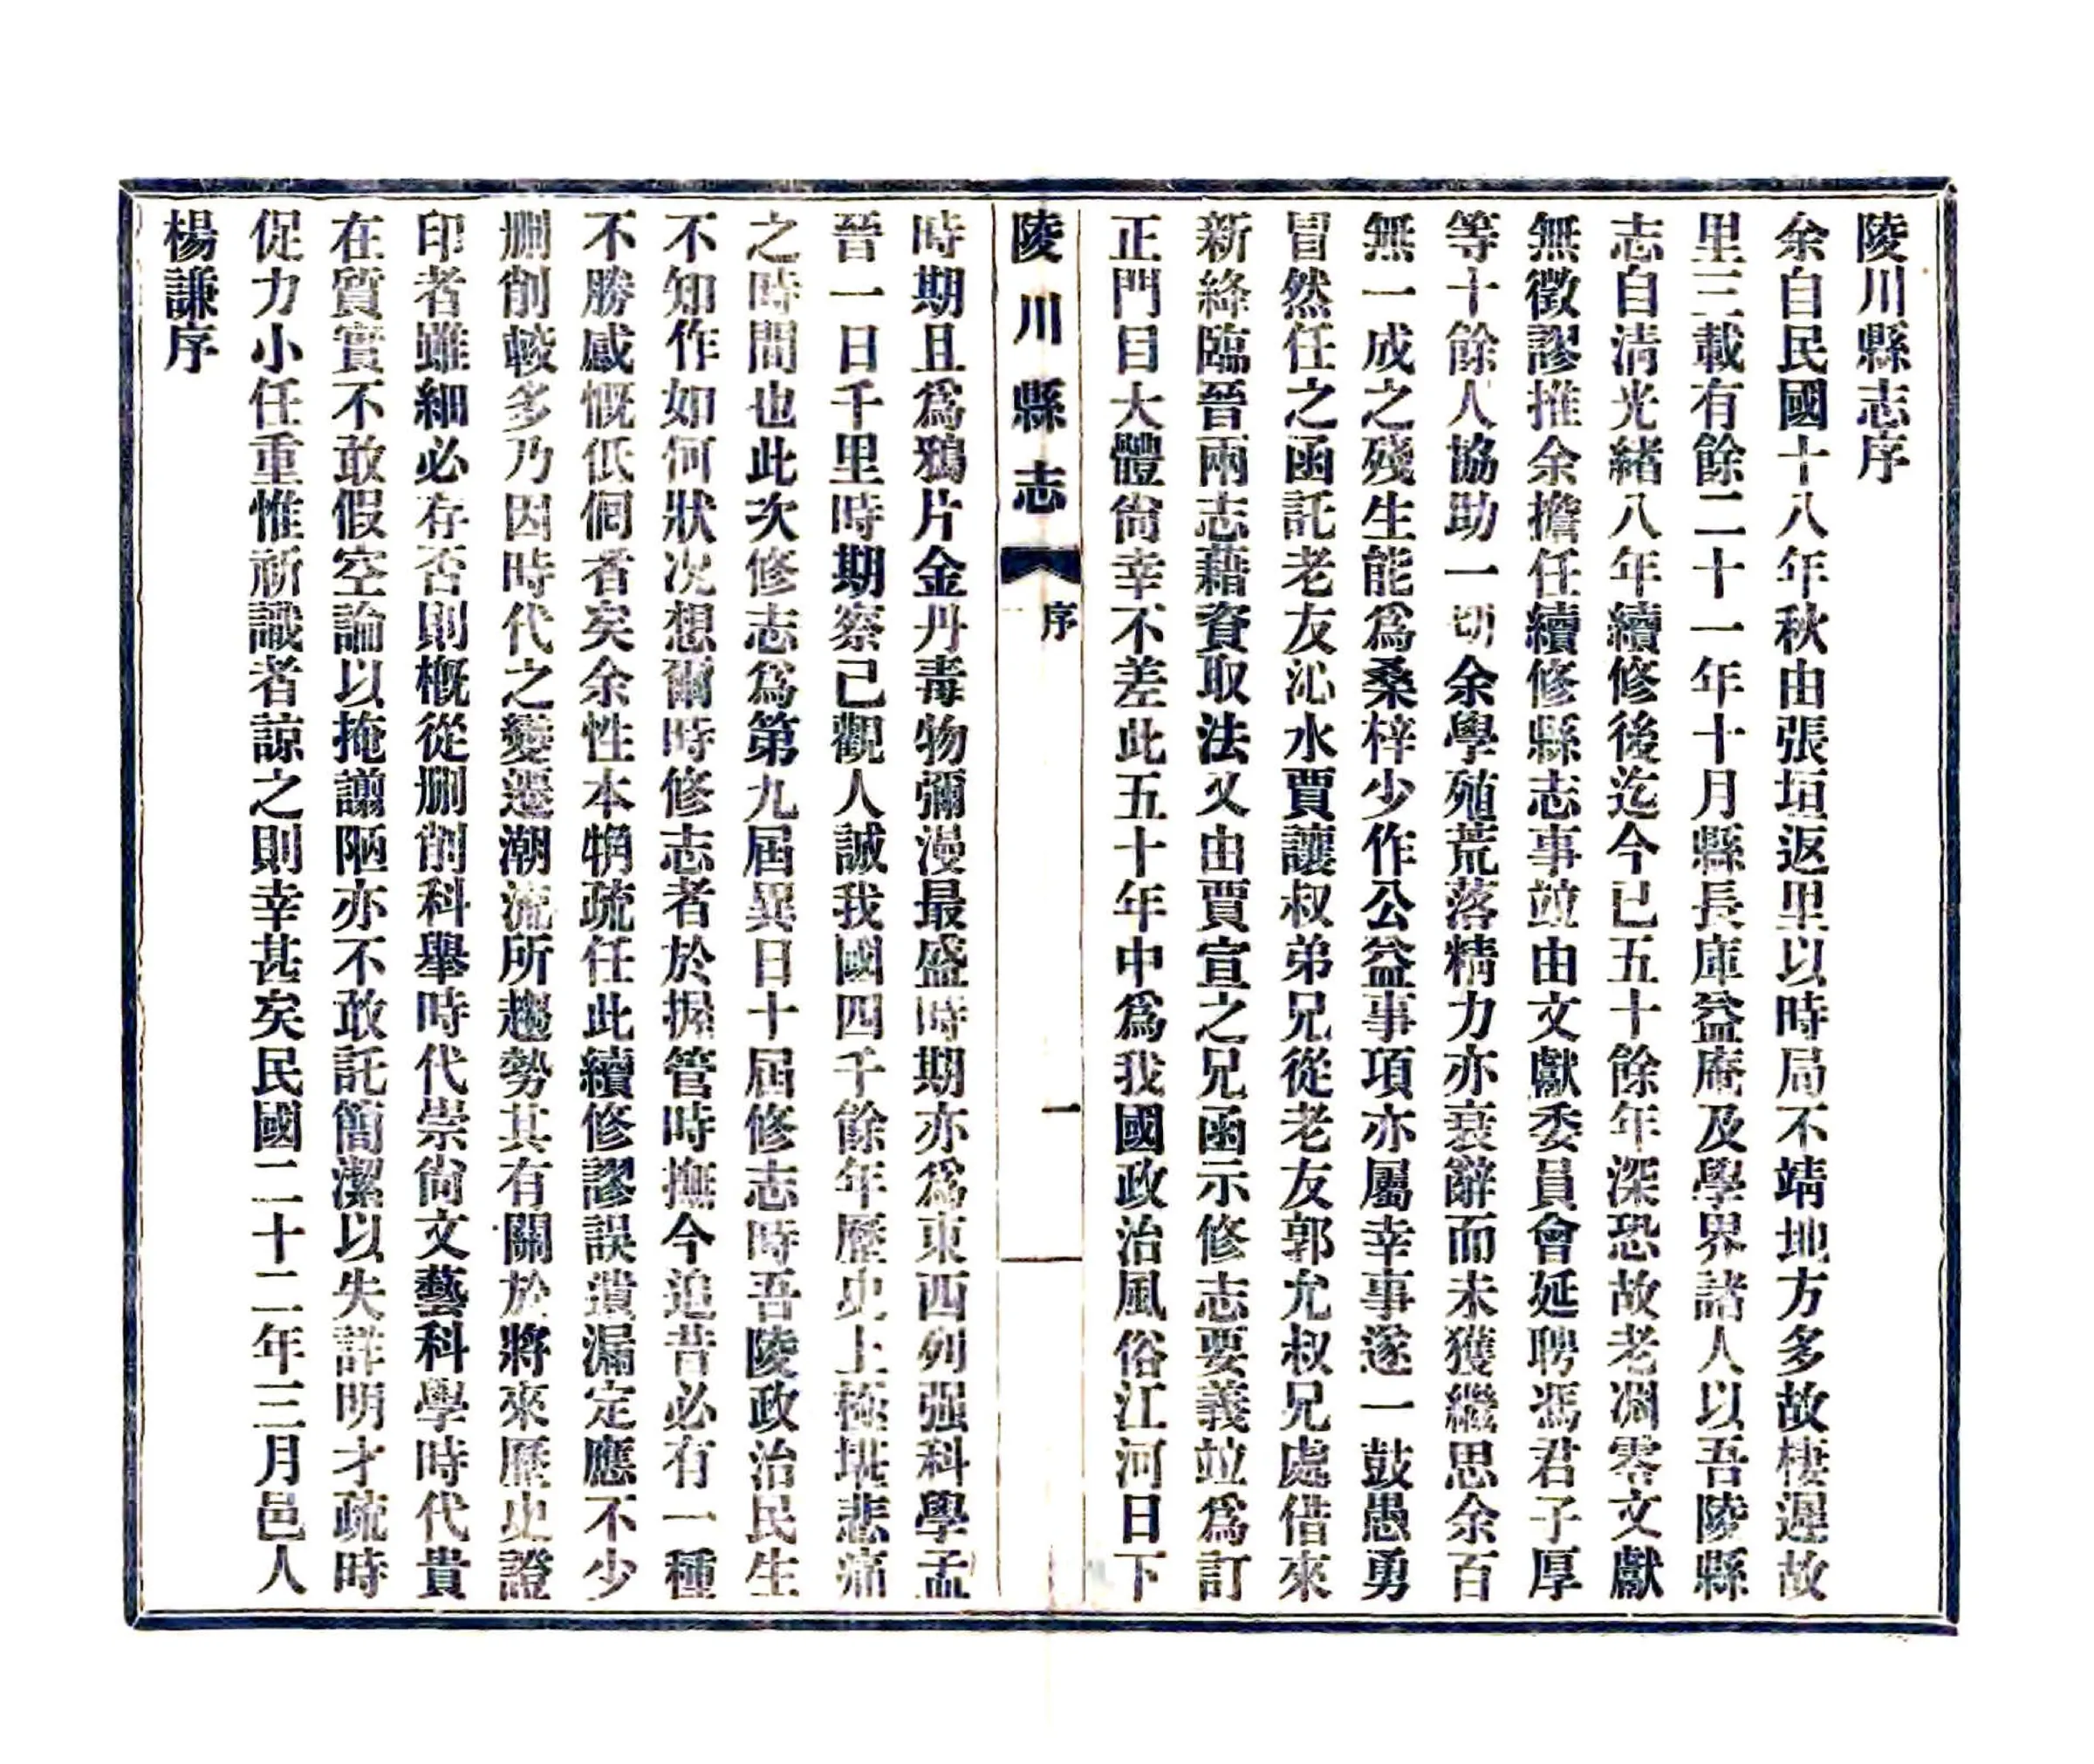 陵川縣志序
余自民國十八年秋由張垣返里以時局不靖地方多故棲遲故
里三載有餘二十一年十月縣長庫益庵及學界諸人以吾陵縣
志自清光緒八年續修後迄今已五十餘年深恐故老凋零文獻
無徵謬推余擔任續修縣志事竝由文獻委員會延聘馮君子厚
等十餘人協助一切余學殖荒落精力亦衰辭而未獲繼思余百
無一成之殘生能爲桑梓少作公益事項亦屬幸事遂一鼓愚勇
冒然任之函託老友沁水賈讓叔弟兄從老友郭允叔兄處借來
新絳臨晉兩志藉資取法又由賈宣之兄函示修志要義竝爲訂
正門目大體尙幸不差此五十年中爲我國政治風俗江河日下
陵川縣志 序 一
時期且爲鴉片金丹毒物彌漫最盛時期亦爲東西列强科學孟
晉一日千里時期察已觀人誠我國四千餘年歷史上極堪悲痛
之時間也此次修志爲第九屆異日十屆修志時吾陵政治民生
不知作如何狀况想爾時修志者於握管時撫今追昔必有一種
不勝感慨低徊者矣余性本犓疏任此續修謬誤潰漏定應不少
删削較多乃因時代之變遷潮流所趨勢其有關於將來歷史證
印者雖細必存否則槪從删削科舉時代崇尙文藝科學時代貴
在質實不敢假空論以掩譾陋亦不敢託簡潔以失詳明才疏時
促力小任重惟祈識者諒之則幸甚矣民國二十二年三月邑人
楊謙序